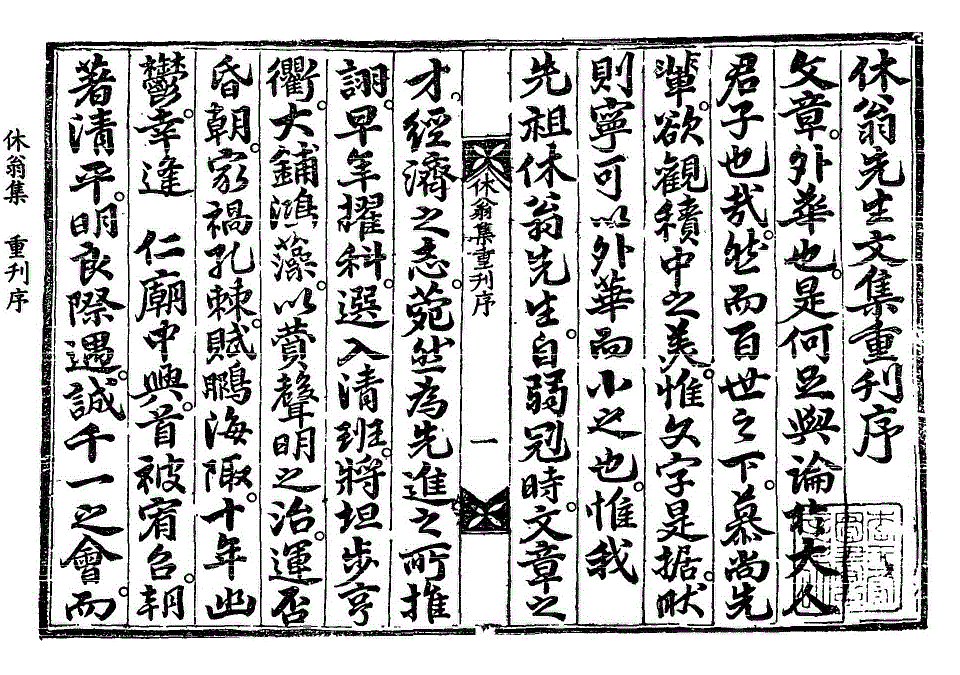 休翁先生文集重刊序
文章。外華也。是何足與論於大人
君子也哉。然而百世之下。慕尙先
輩。欲觀積中之美。惟文字是據。則
則寧可以外華而小之也。惟我
先祖休翁先生。自弱冠時。文章之
才。經濟之志。菀然爲先進之所推
詡。早年擢科。選入淸班。將坦步亨
衢。大鋪鴻藻。以賁聲明之治。運否
昏朝。家禍孔棘。賦鵩海陬。十年幽
鬱。幸逢 仁廟中興。首被宥召。朝
著淸平。明良際遇。誠千一之會。而
休翁集重刊序
一
休翁集 重刊序